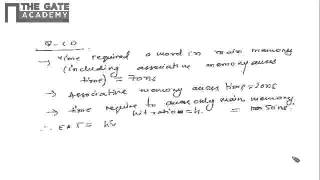 THE GATE
ACADEMY
→ Time required a word in main memory
(including associative memory access
time) = 70ns
→ Associative memory access time = 20ns
→ time require to access only main memory
hit ratio = h. = 50ns.
∴ EAT = h